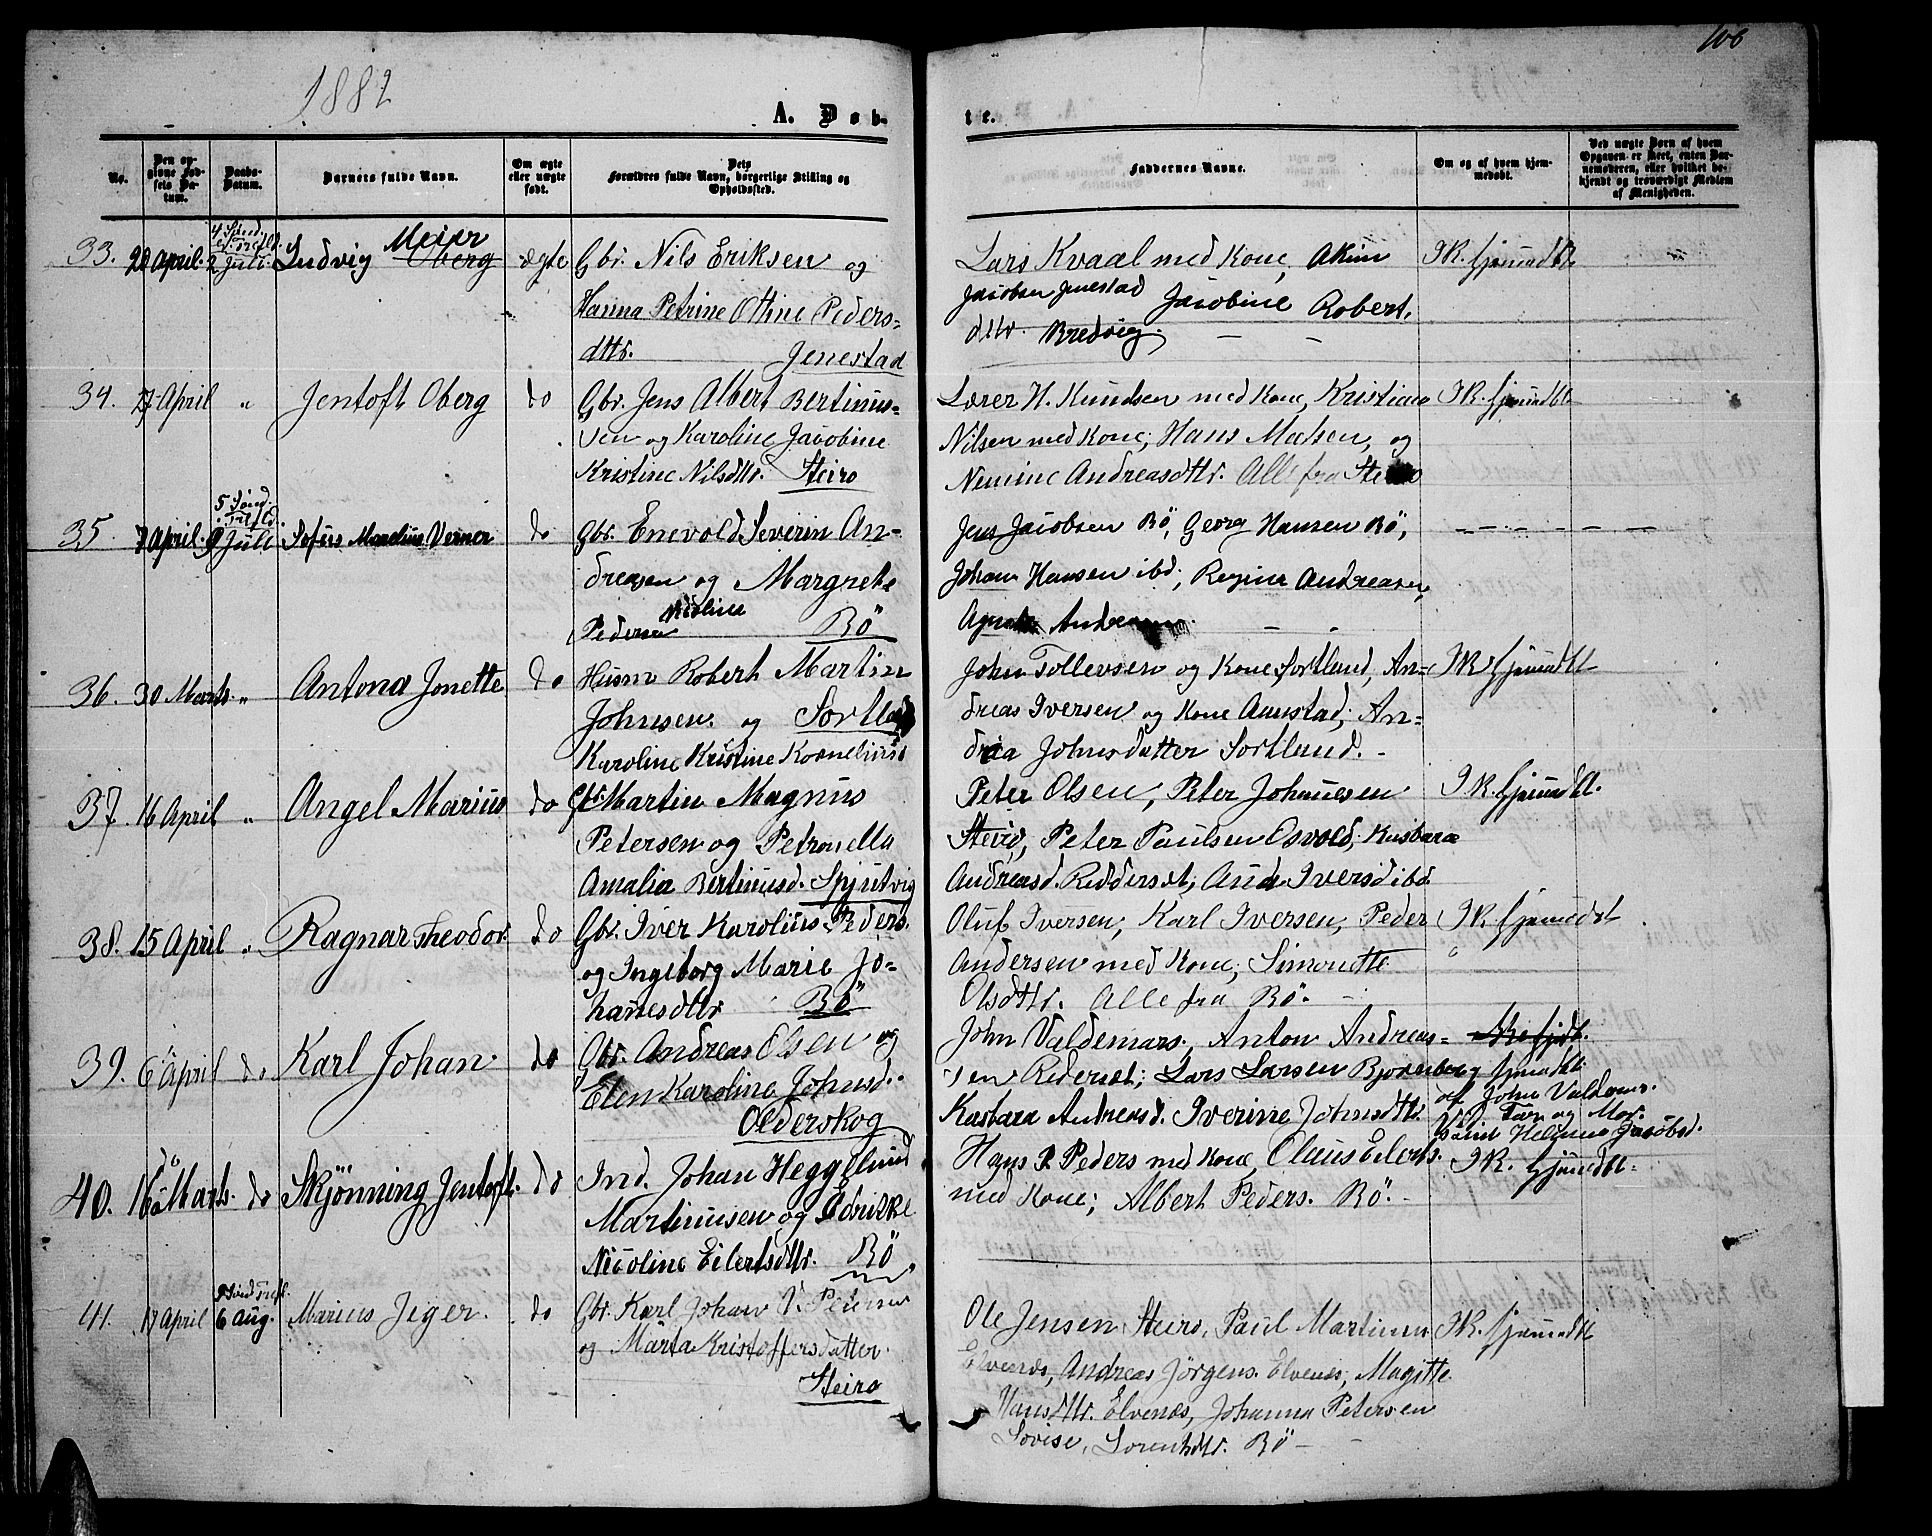 1882
106
A. Døb-
te.
No.
Den opgivne Fødsels Datum.
Daabs-Datum.
Barnets fulde Navn.
Om ægte eller uægte født.
Dets Forældres fulde Navn, borgerlige Stilling og Opholdssted.
Faddernes Navne.
Om og af hvem hjemmedøbt.
Ved uægte Børn af hvem Opgaven er skeet, enten Barnemoderen, eller hvilket bekjendt og troværdigt Medlem af Menigheden.
33. 20 April. 4. Sønd. e. Trefld. 2 Juli. Ludvig Meier Oberg ægte Gbr. Nils Eriksen og
Hanna Petrine Ottine Peders=
dttr. Jenestad
Lars Kvaal med Kone, Akim
Jacobsen Jenestad Jacobine Robert.
dttr. Bredvig.
34. 7 April " Jentoft Oberg do Gbr. Jens Albert Bertinus=
sen og Karoline Jacobine
Kristine Nilsdttr. Steiro
Lærer H. Knudsen med Kone, Kristian
Nilsen med Kone; Hans Matsen, og
Nemine Andreasdttr. Alle fra Steiro
35. 7 April. 5 Sønd. e. Trefld. 9 Juli Sofus Marelius Verner do Gbr. Enevold Severin An=
dreasen og Margrete
Nicoline
Pedersen Bö
Jens Jacobsen Bö, Georg Hansen Bö,
Johan Hansen ibd; Regina Andreasen,
Andreasen.
36. 30 Marts " Antona Jonette do Husm Robert Martin
Johnsen. og Sortland
Karoline Kristine Kornelius
John Tollevsen og Kone Sortland, An=
dreas Iversen og Kone Aanstad; An=
drea Johnsdatter Sortland.
37. 16 April " Angel Marius do Gbr. Martin Magnus
Petersen og Petronella
Amalia Bertinusd. Spjutvig
Peter Olsen, Peter Johnsen
Steiro, Peter Paulsen Osvold, Kasbara
Andreasd. Redderset; Ana Iversd ibd
38. 15 April " Ragnar Theodor. do Gbr. Iver Karolius Peders.
og Ingeborg Marie Jo=
hannesdttr Bö
Oluf Iversen, Karl Iversen, Peder
Andersen med Kone; Simonette
Olsdttr. Alle fra Bö.
39. 6 April do Karl Johan do Gbr. Andreas Olsen og
Elen Karoline Johnsd.
Olderskog
John Valdemars., Anton Andreas=
sen Rederset; Lars Larsen Bjornberg
Kasbara Andreasd. Iverine Johnsdttr.
af John Valdems.
Far og Mor.
40. 16 Marts. do Skjønning Jentoft. do Ind. Johan Heggelund
Martinussen og
Nicoline Eilertsdttr. Bö
Hans P. Peders med Kone, Olaus Eilerts.
med Kone; Albert Peders. Bö.
41. 17 April 6 Aug. Marius Jeger. do Gbr. Karl Johan V. Petersen
og Marta Kristoffersdatter.
Steiro
Ole Jensen Steiro, Paul Martinus
Elvenæs, Andreas Jörgens. Elvenæs, Magitte
Hansdttr. Elvenæs, Johanna Petersen
Lovise, Sorensdttr. Bö